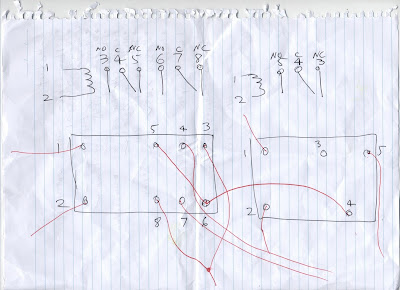 NO C NC NO C NC
3 4 5 6 7 8
1
2
NO C NC
5 4 3
1
2
5 4 3
1
2
8 7 6
3
1 5
2 4